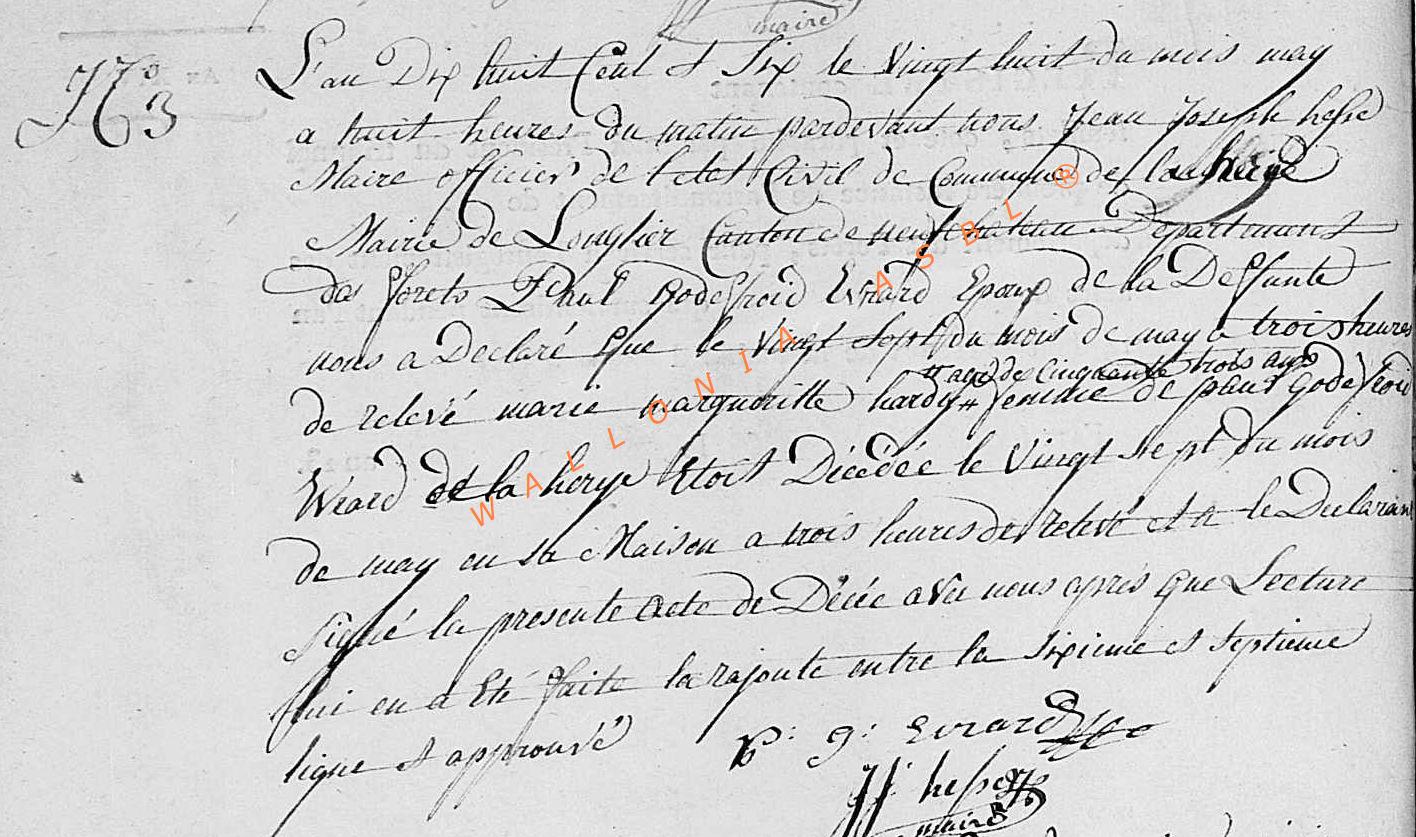 maire
N° 3
L'an Dix huit Cent et Six le Vingt huit du mois may
a huit heures du matin pardevant nous Jean Joseph hesse
Maire officier de l'etat Civil de Commune de laherie
Mairie de Longlier Canton de neufchateau Departement
des forets Paul Godeffroid Evrard Epoux de la Deffunte
nous a Declaré que le Vingt Sept du mois de may a trois heures
# agé de Cinquante trois ans
de relevé marie margueritte hardy # femme de paul Godeffroid
Evrard de la herye Etoit Décédée le Vingt sept du mois
de may en sa Maison a trois heures de relevé et a le Declarant
signé la presente acte de Décée avec nous aprés que Lecture
lui en a Eté faite la rajoute entre la Sixieme et Septieme
ligne et approuvé
p: g: Evrard
JJ hesse
maire
WALLONIA ASBL ®